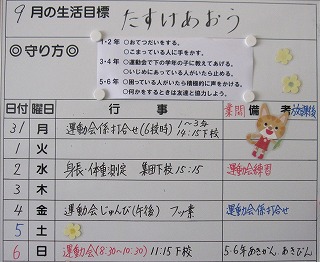 9月の生活目標 たすけあおう
◎守り方◎
1・2年 ○おてつだいをする。
○こまっている人に手をかす。
3・4年 ○運動会で下の学年の子に教えてあげる。
○いじめにあっている人がいたら止める。
5・6年 ○困っている人がいたら積極的に声をかける。
○何かをするときは友達と協力しよう。
日付 曜日 行事 業間 備考 放課後
31 月 運動会係打合せ(6校時) 1~3年 14:15下校
1 火
2 水 身長・体重測定 集団下校15:15 運動会練習
3 木
4 金 運動会じゅんび(午後) フッ素 運動会係打合せ
5 土
6 日 運動会(8:30~10:30) 11:15下校 5・6年あきかん、あきびん